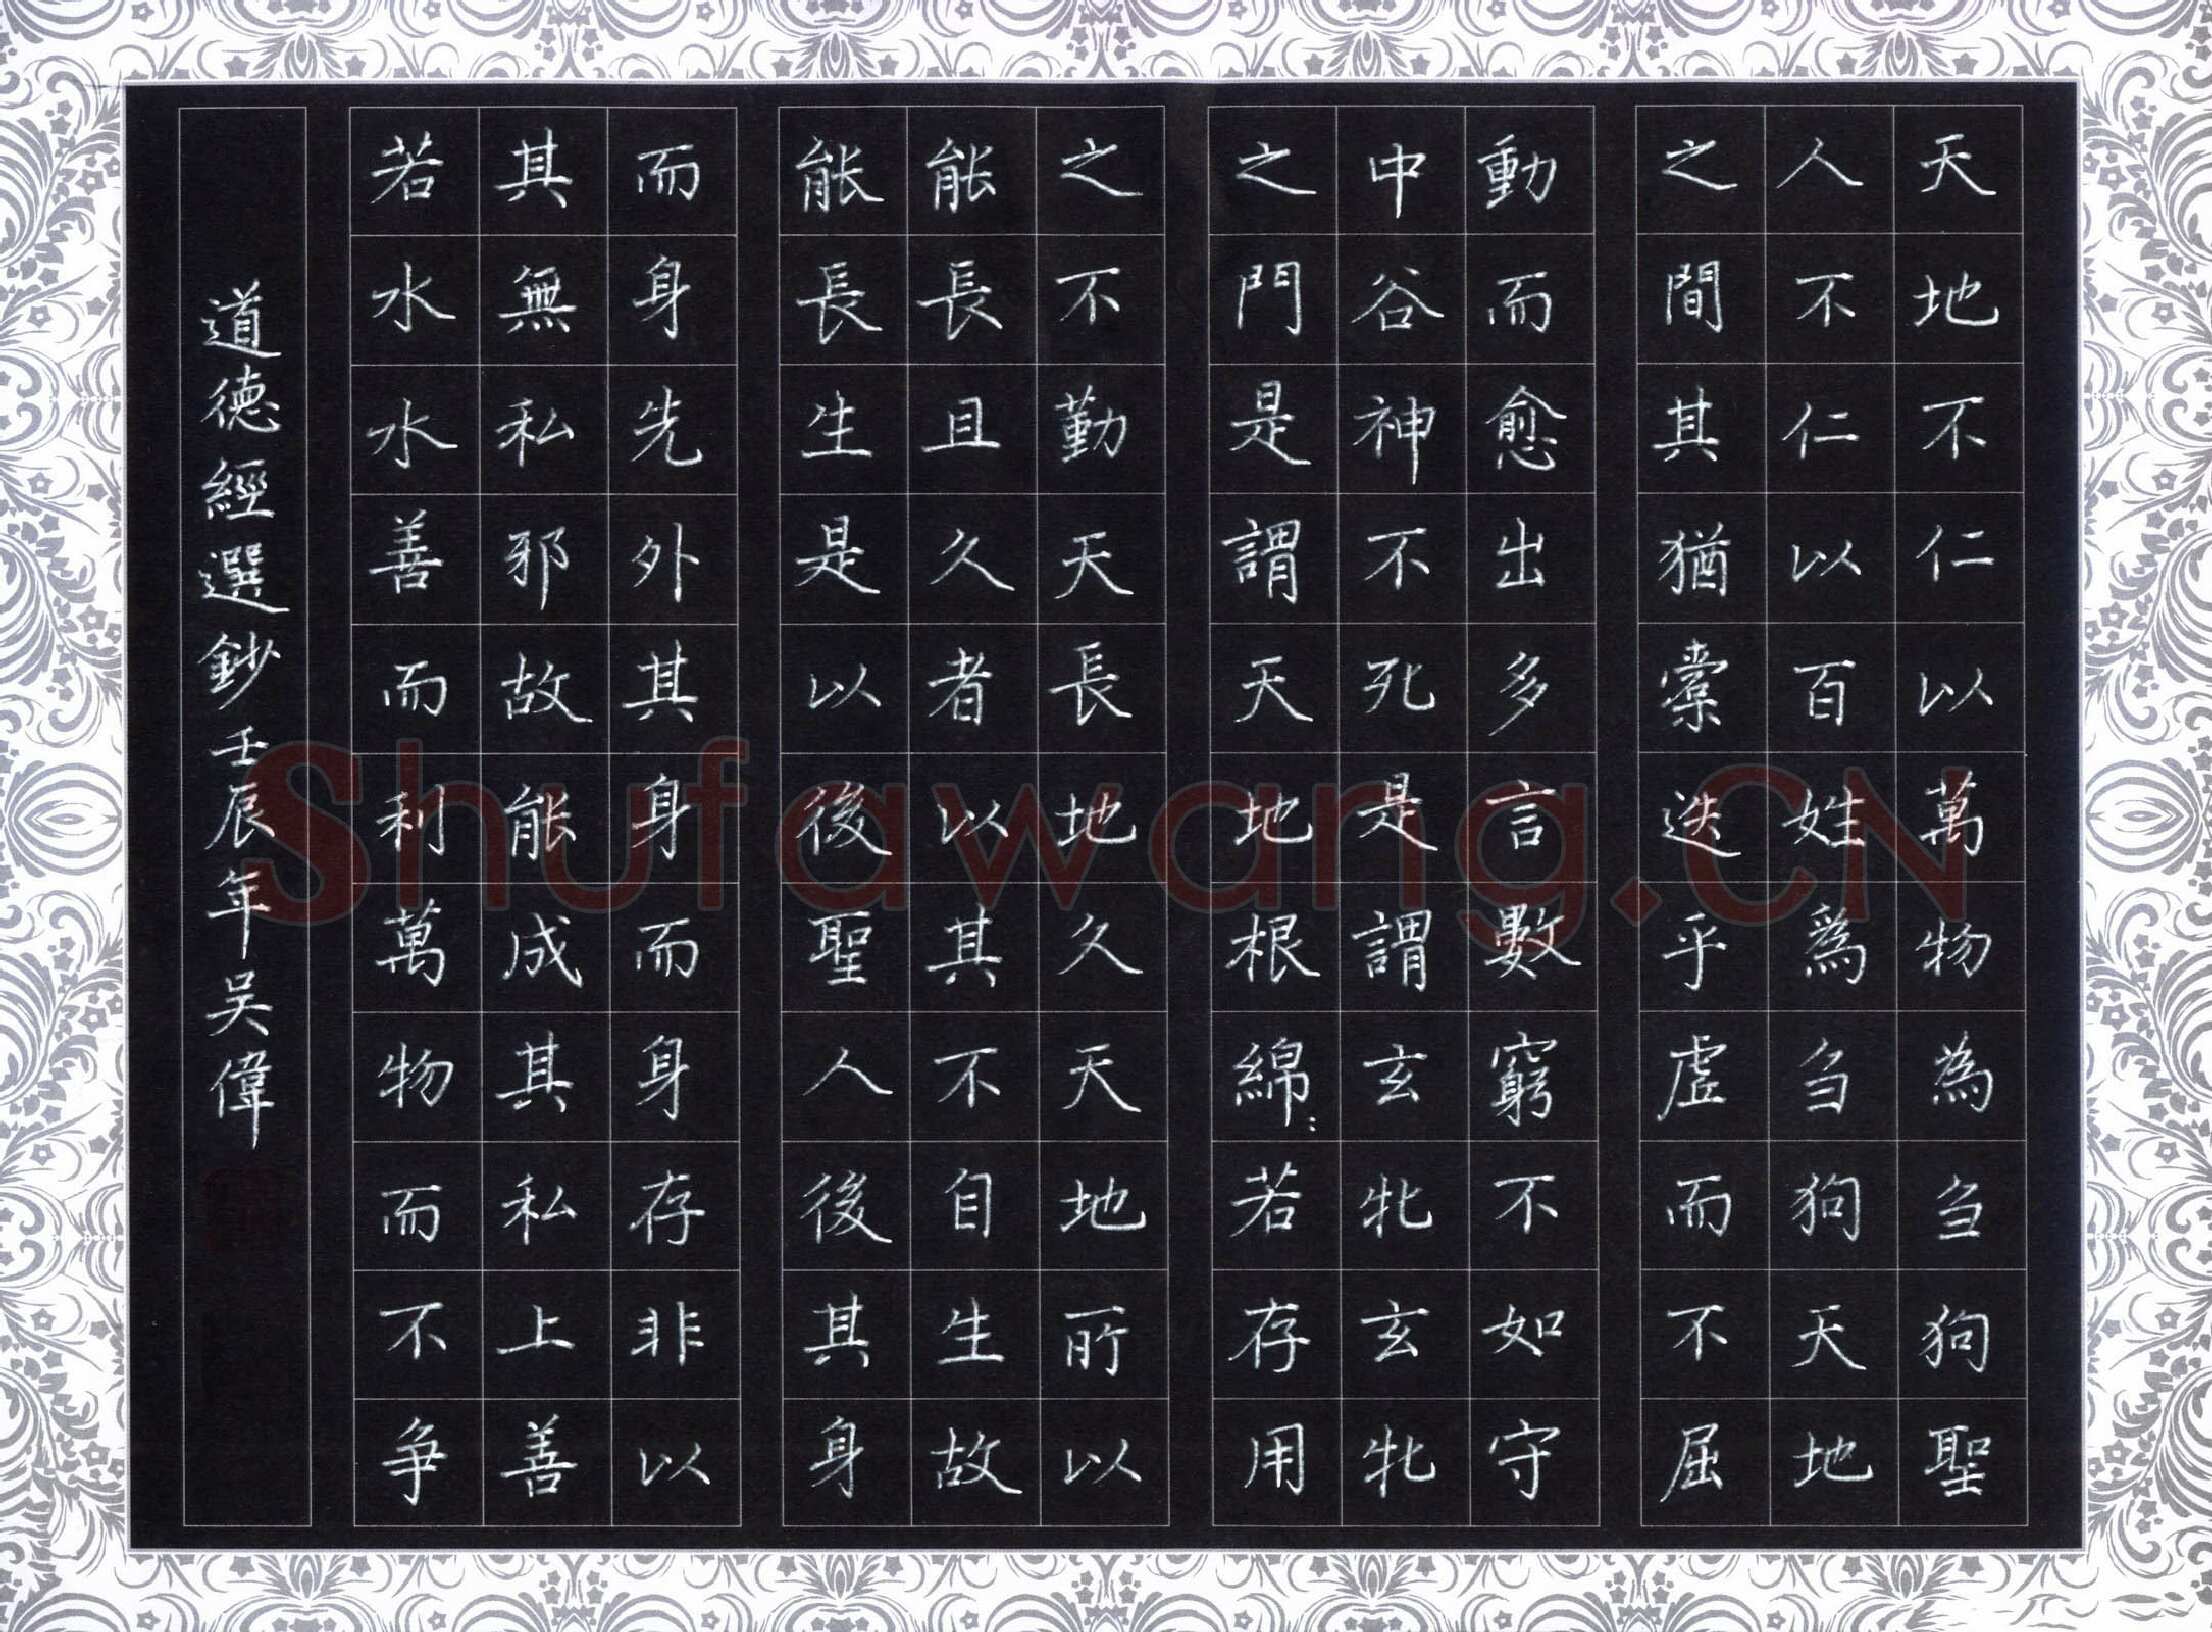 天地不仁以萬物為刍狗聖
人不仁以百姓爲刍狗天地
之間其猶橐迭乎虚而不屈
動而愈出多言數窮不如守
中谷神不死是謂玄牝玄牝
之門是謂天地根綿:若存用
之不勤天長地久天地所以
能長且久者以其不自生故
能長生是以後聖人後其身
而身先外其身而身存非以
其無私邪故能成其私上善
若水水善而利萬物而不争
道德經選鈔壬辰年吴偉
Shufawang.CN